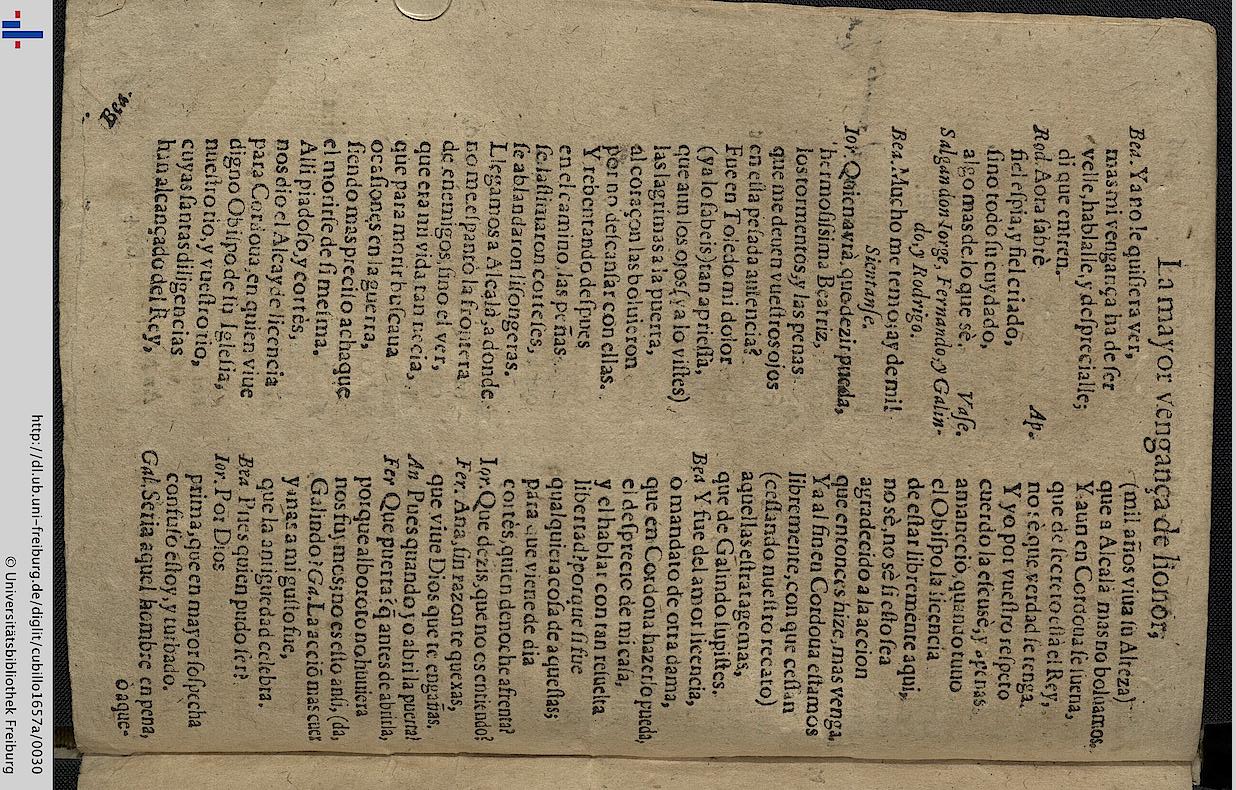 La mayor vengança de honor,
Bea. Ya no le quisiera ver,
mas mi vengança ha de ser
velle, hablalle, y despreciallе;
di que entren.
Rod. Aora sabrè Ap.
fiel espia, y fiel criado,
sino todo su cuydado,
algo mas de lo que sè. Vase.
Salgan don Iorge, Fernando, y Galin-
do, y Rodrigo.
Bea. Mucho me temo; ay de mi!
Sientanse.
Ior. Quien avrà, que dezir pueda,
hermosissima Beatriz,
los tormentos, y las penas
que me deuen vuestros ojos
en esta pesada ausencia?
Fue en Toledo mi dolor
(ya lo sabeis) tan apriessa,
que aun los ojos (ya lo vistes)
las lagrimas a la puerta,
al coraçon las boluieron
por no descansar con ellas.
Y rebentando despues
en el camino, las peñas
se lastimaron corteses,
se ablandaron lisongeras.
Llegamos a Alcala, a donde
no me espantò la frontera
de enemigos, sino el ver,
que era mi vida tan necia,
que para morir buscaua
ocasiones en la guerra,
siendo mas preciso achaque
el morirse de si mesma.
Alli piadoso, y cortès,
nos dio el Alcayde licencia
para Cordoua, en quien viue
digno Obispo de su Iglesia,
nuestro tio, y vuestro tio,
cuyas santas diligencias
han alcançado del Rey,
Bea.
(mil años viua su Alteza)
que a Alcalà mas no boluamos.
Y aun en Cordoua se suena,
que de secreto està el Rey,
no sè, que verdad se tenga.
Y yo, por vuestro respeto
cuerdo la escusè, y apenas
amaneciò, quando tuuo
el Obispo la licencia
de estar libremente aqui,
no sè, no sè si esto sea
agradecido a la accion
que entonces hize, mas venga.
Ya al fin en Cordoua estamos
libremente, con que cessan
(cessando nuestro recato)
aquellas estratagemas,
que de Galindo supistes.
Bea Y fue del amor licencia,
o mandato de otra dama,
que en Cordoua hazerlo pueda,
el desprecio de mi casa,
y el hablar con tan resuelta
libertad? porque si fue
qualquiera cosa de aquestas;
para que viene de dia
cortès, quien de noche afrenta?
Ior. Que dezis, que no os entiendo?
Fer. Ana, sin razon te quexas,
que viue Dios que te engañas.
An Pues quando yo abri la puerta?
Fer Que puerta? q̃ antes de abrirla,
porque alboroto no huuiera
nos fuymos; no es esto ansi, (da
Galindo? Ga. La acciõ mas cuer
y mas a mi gusto fue,
que la antiguedad celebra.
Bea Pues quien pudo ser?
Ior. Por Dios
prima, que en mayor sospecha
confuso estoy, y turbado.
Gal. Seria aquel hombre en pena,
ò aque-
http://dl.ub.uni-freiburg.de/diglit/cubillo1657a/0030
© Universitätsbibliothek Freiburg